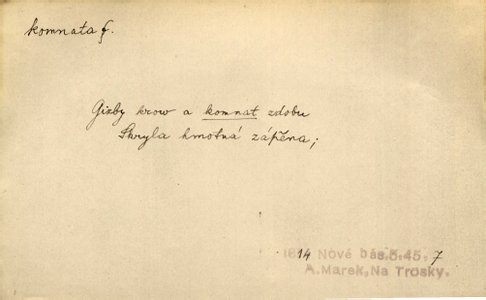 komnata f.
Gizby krow a komnat zdobu
Skryla hmotná zápěna;
1814 Nové bás. 5.45. 7
A.Marek, Na Trosky.